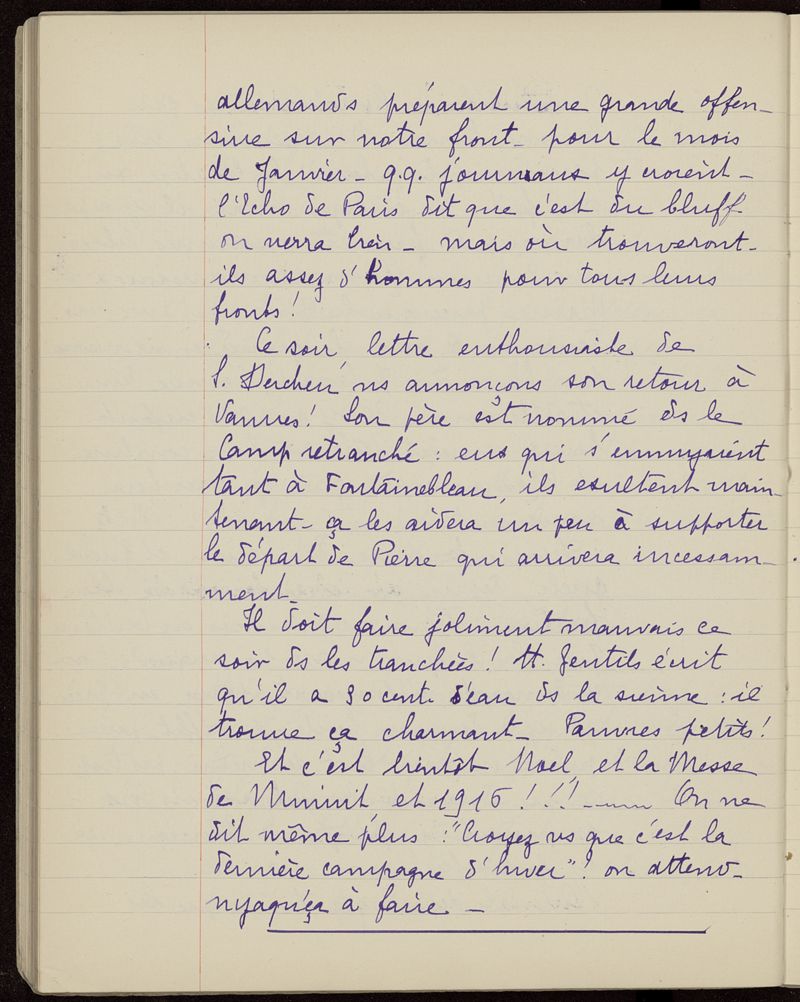 allemands préparent une grande offen-
sive sur notre front - pour le mois
de Janvier - q.q. journaux y croient -
l'Echo de Paris dit que c'est du bluff
on verra bien - mais où trouveront-
ils assez d'hommes pour tous leurs
fronts !
Ce soir, lettre enthousiaste de
S. ns annonçons son retour à
Vannes ! Son père est nommé ds le
Camp retranché : eux qui s'ennuyaient
tant à Fontainebleau, ils exultent main-
tenant - ça les aidera un peu à supporter
le départ de Pierre qui arrivera incessam-
ment -
Il doit faire joliment mauvais ce
soir ds les tranchées ! H. Gentils écrit
qu'il a 30 cent. d'eau ds la sienne : il
trouve ça charmant - Pauvres petits !
Et c'est bientôt Noel, et la Messe
de Minuit, et 1916 ! !! ------ On ne
dit même plus : "Croyez vs que c'est la
dernière campagne d'hiver" ? on attend -
nyaqu'ça à faire. -